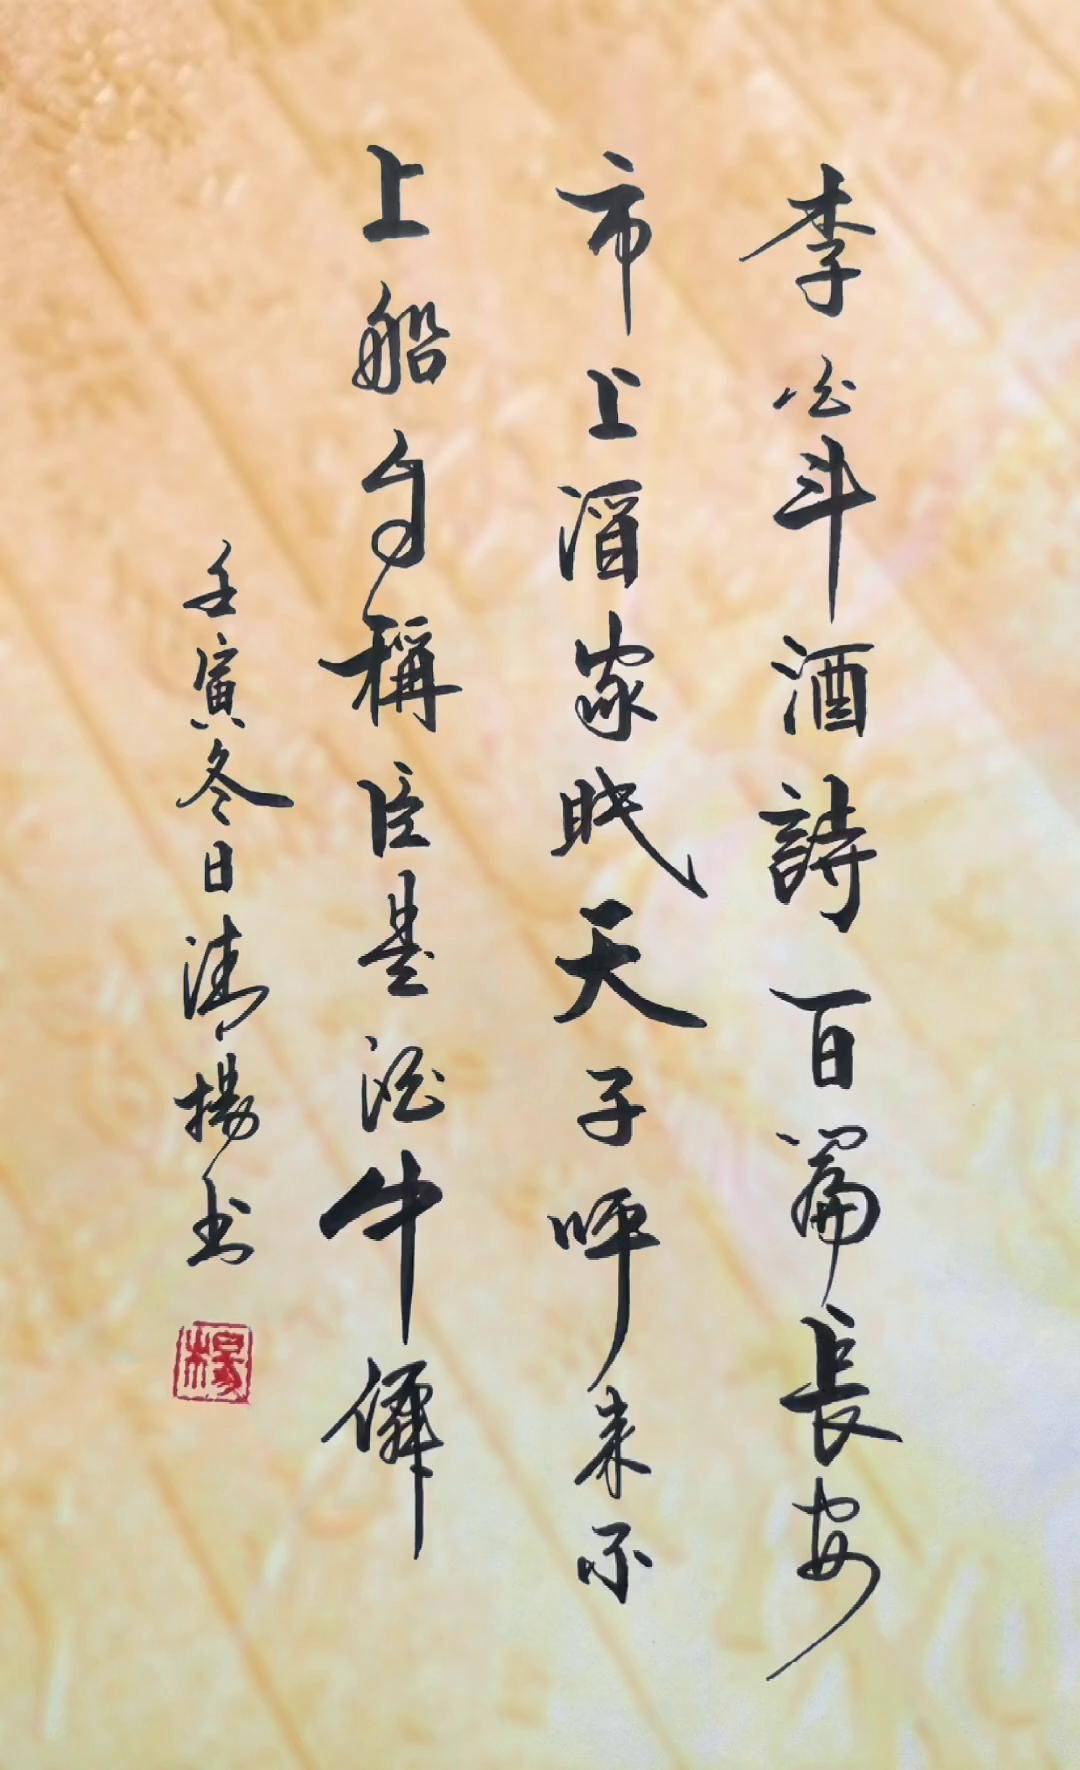 李白斗酒詩百篇長安
市上酒家眠天子呼来不
上船自稱臣是酒中僊
壬寅冬日清揚书
楊